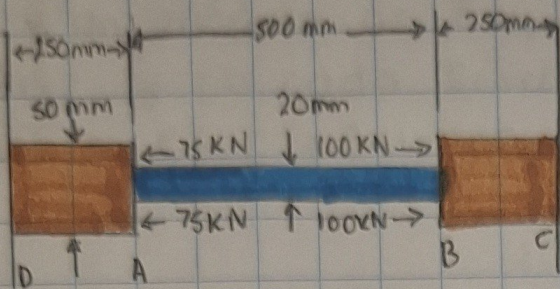 250mm 500mm 250mm
50mm 20mm
75KN 100KN
75KN 100KN
D A B C